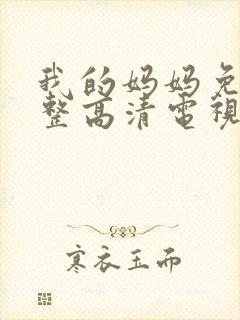 我的妈妈免
整高清電視
寒衣玉而